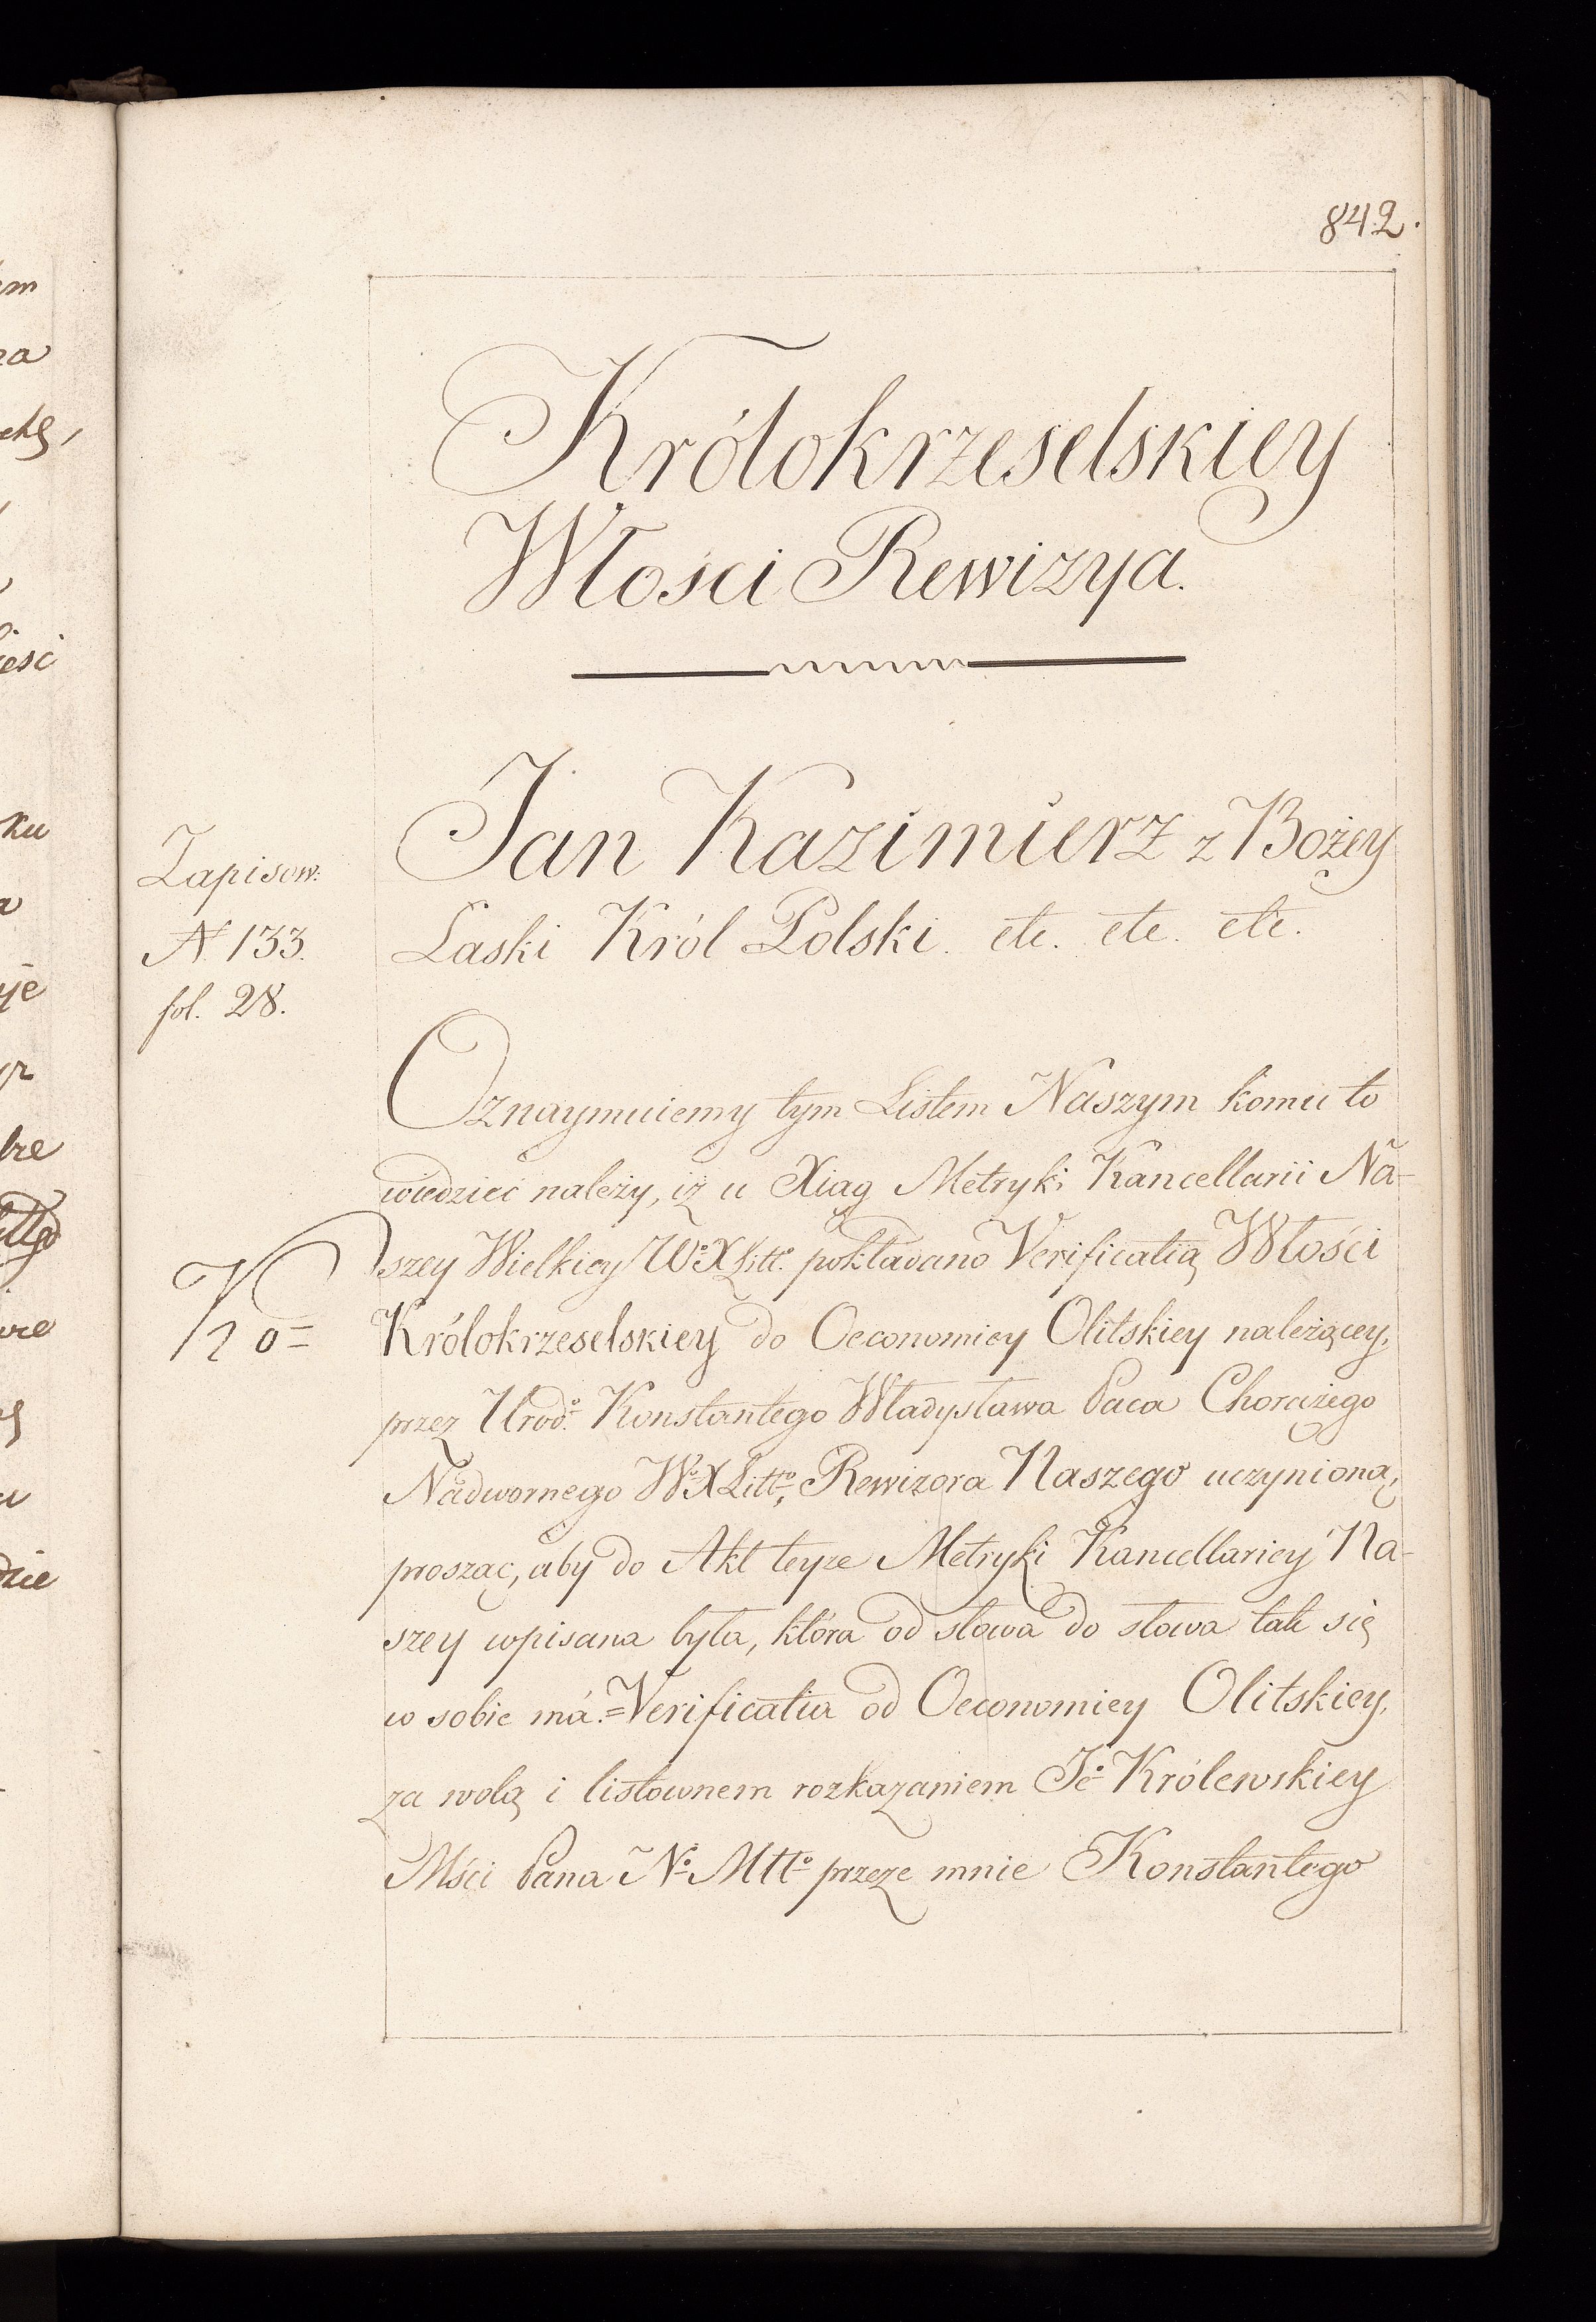 842.
Królokrzeselskiey
Włości Rewizya.
Jan Kazimierz z Bożey
Łaski Król Polski. etc. etc. etc.
Zapisow:
N 133.
fol. 28.
Oznaymuiemy tym Listem Naszym komu to
wiedzieć należy, iż u Xiąg Metryki Kancellarii Na-
szey Wielkiey Wo. X Litto. pokładano Verificatią Włości
Królokrzeselskiey do Oeconomiey Olitskiey należącey,
przez Urodo. Konstantego Władysława Paca Chorążego
Nadwornego Wo. X Litto, Rewizora Naszego uczynioną,
prosząc, aby do Akt teyże Metryki Kancellariey Na-
szey wpisana była, która od słowa do słowa tak się
w sobie má. = Verificatia od Oeconomiey Olitskiey,
za wolą i listownem rozkazaniem Jeo Królewskiey
Mści Pana No. Mtto przeze mnie Konstantego
ku
dzie